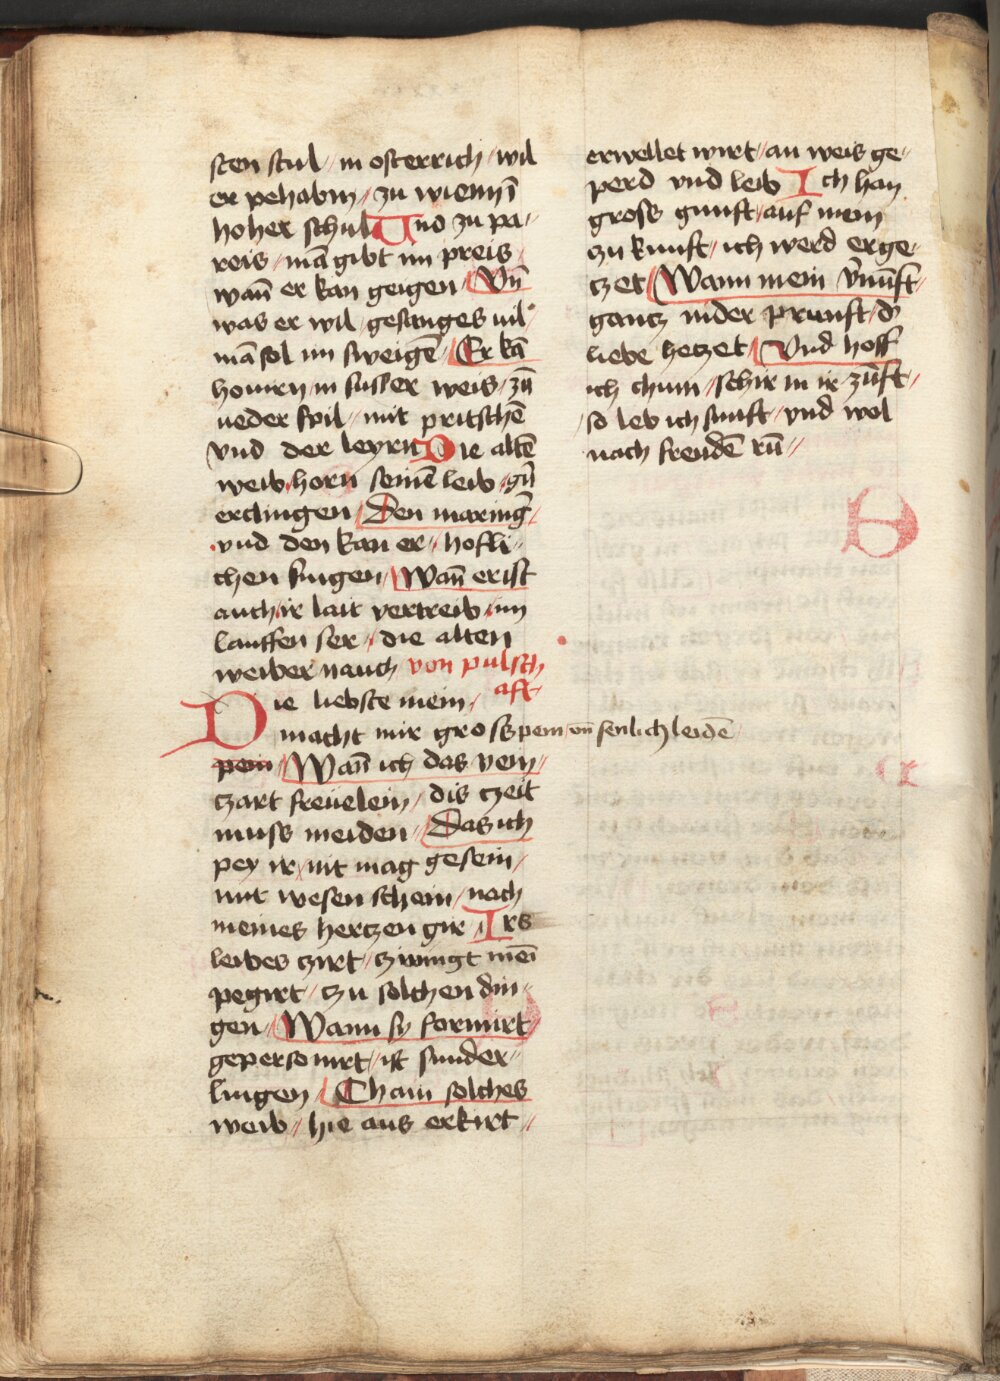 sten stul / in osterrich / wil
er pehabm / zu wienn ī
hoher schul Und zu pa-
reis / mā gibt im preis /
wan̄ er kan geigen / Vn̄
was er wil / gesanges vil /
mā sol im sweigē / Er kā
hoiirn in susser weis / zū
ueder spil / mit pritschē
vnd der leyrn Die altē
weib / horn seinē leib / gīr
erclingen / Den maxing̅ /
vnd den kan er / hofli-
chen singen / Wan̄ er ist
auch ir lait vertreib / im
lauffen ser / die alten
weiber nauch von pulsch
aft
Die liebste mein /
macht mir gross pein vn̄ senlich leidē
pein / Wan̄ ich das vein /
czart freüelein / dis czeit
muss meiden / Das ich
pey ir / nit mag gesein /
mit wesen schein / noch
meines hertzen gir / Irs
leibes czirt / czwingt meī
pegirt / czu solchen din-
gen / Wann sy formirt /
gepersonirt / ist sunder-
lingen / Chain solches
weib / hie aus erkirt /
erwellet wirt / an weis ge-
perd vnd leib Ich han
gross gunst / auf mein
zu kunft / ich werd erge-
czet / Wann mein v̄nūft /
gantz in der prunst / d̄
liebe hetzet / Vnd hoff
ich chum / schir in ir zūft /
so leb ich sunst / vnd wol
nach freudē rū /